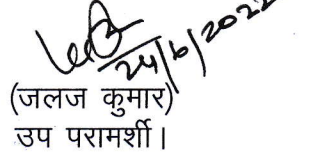 24/6/2022
(जलज कुमार)
उप परामर्शी।